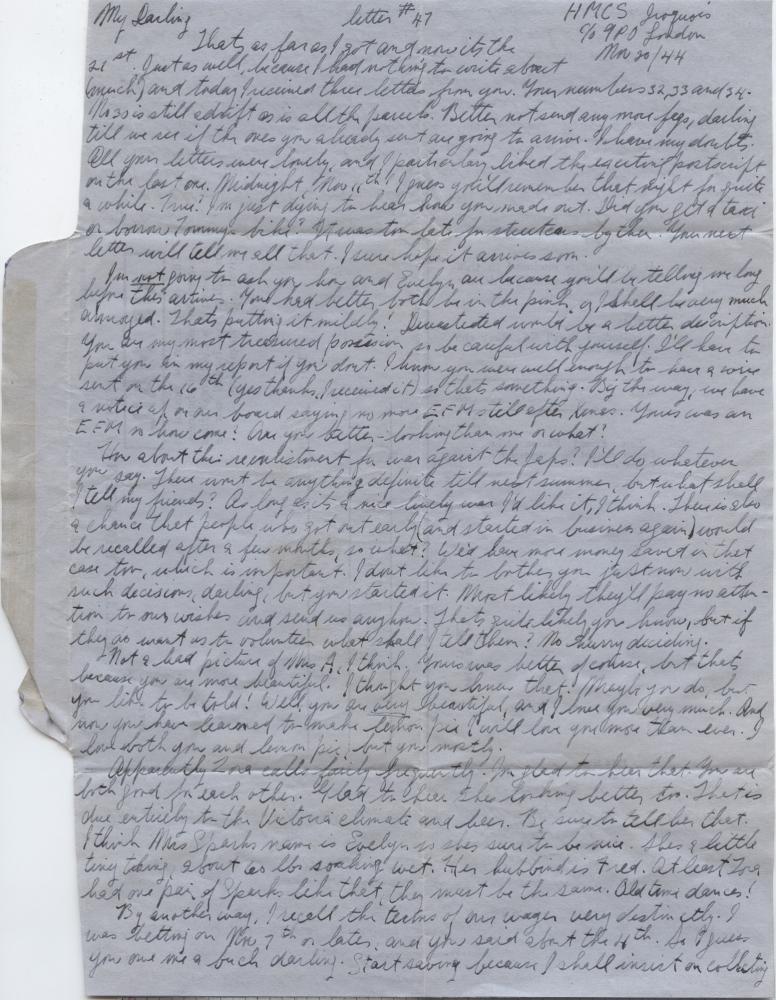 My Darling letter #47 HMCS Iroquois
c/o GPO London
Nov 20/44
Thats as far as I got and now its the
21st. Just as well, because I had nothing to write about
(much) and today I received three letters from you. Your numbers 32, 33 and 34.
No 30 is still adrift as is all the parcels. Better not send any more fags, darling
till we see if the ones you already sent are going to arrive. I have my doubts.
All your letters were lovely, and I particulary liked the exciting postscript
on the last one. Midnight, Nov. 11th! I guess you'll remember that night for quite
a while. True! I'm just dying to hear how you made out. Did you get a taxi
or borrow Tommy's bike? It was too late for streetcars by then. Your next
letter will tell me all that. I sure hope it arrives soon.
I'm not going to ask you how and Evelyn are because you'll be telling me long
before this arrives. You had better both be in the pink, or I shall be very much
annoyed. Thats putting it mildly! Devastated would be a better description.
You are my most treasured possession so be careful with yourself. I'll have to
put you in my report if you dont. I know you were well enough to have a wire
sent on the 16th (yes thanks, I received it) so thats something. By the way, we have
a notice up on our board saying no more EFM's till after Xmas. Yours was an
EFM so how come? Are you better-looking than me or what?
How about this reenlistment for war against the Japs? I'll do whatever
you say. There wont be anything definite till next summer, but what shall
I tell my friends? As long as its a nice lively war I'd like it, I think. There is also
a chance that people who got out early (and started in business again) would
be recalled after a few months, so what? We'd have more money saved in that
case too, which is important. I dont like to bother you just now with
such decisions, darling, but you started it. Most likely they'll pay no atten-
tion to our wishes and send us anyhow. Thats quite likely you know, but if
they do want us to volunteer what shall I tell them? No hurry deciding.
Not a bad picture of Mrs. A, I think. Yours was better of course, but thats
because you are more beautiful. I thought you knew that! Maybe you do, but
you like to be told! Well you are very beautiful, and I love you very much. And
now you have learned to make lemon pie I will love you more than ever. I
love both you and lemon pie, but you mostly.
Apparently Zora calls fairly frequently. I'm glad to hear that. You are
both good for each other. Glad to hear shes looking better too. That is
due entirely to the Victoria climate and beer. Be sure to tell her that.
I think Mrs Sparks name is Evelyn so shes sure to be nice. Shes a little
tiny thing, about 60 lbs soaking wet. Her hubbind is Fred. At least Zora
had one pair of Sparks like that, they must be the same. Old time dances!
By another way, I recall the terms of our wager very distinctly. I
was betting on Nov 7th or later, and you said about the 4th. So I guess
you owe me a buck darling. Start saving because I shall insist on collecting